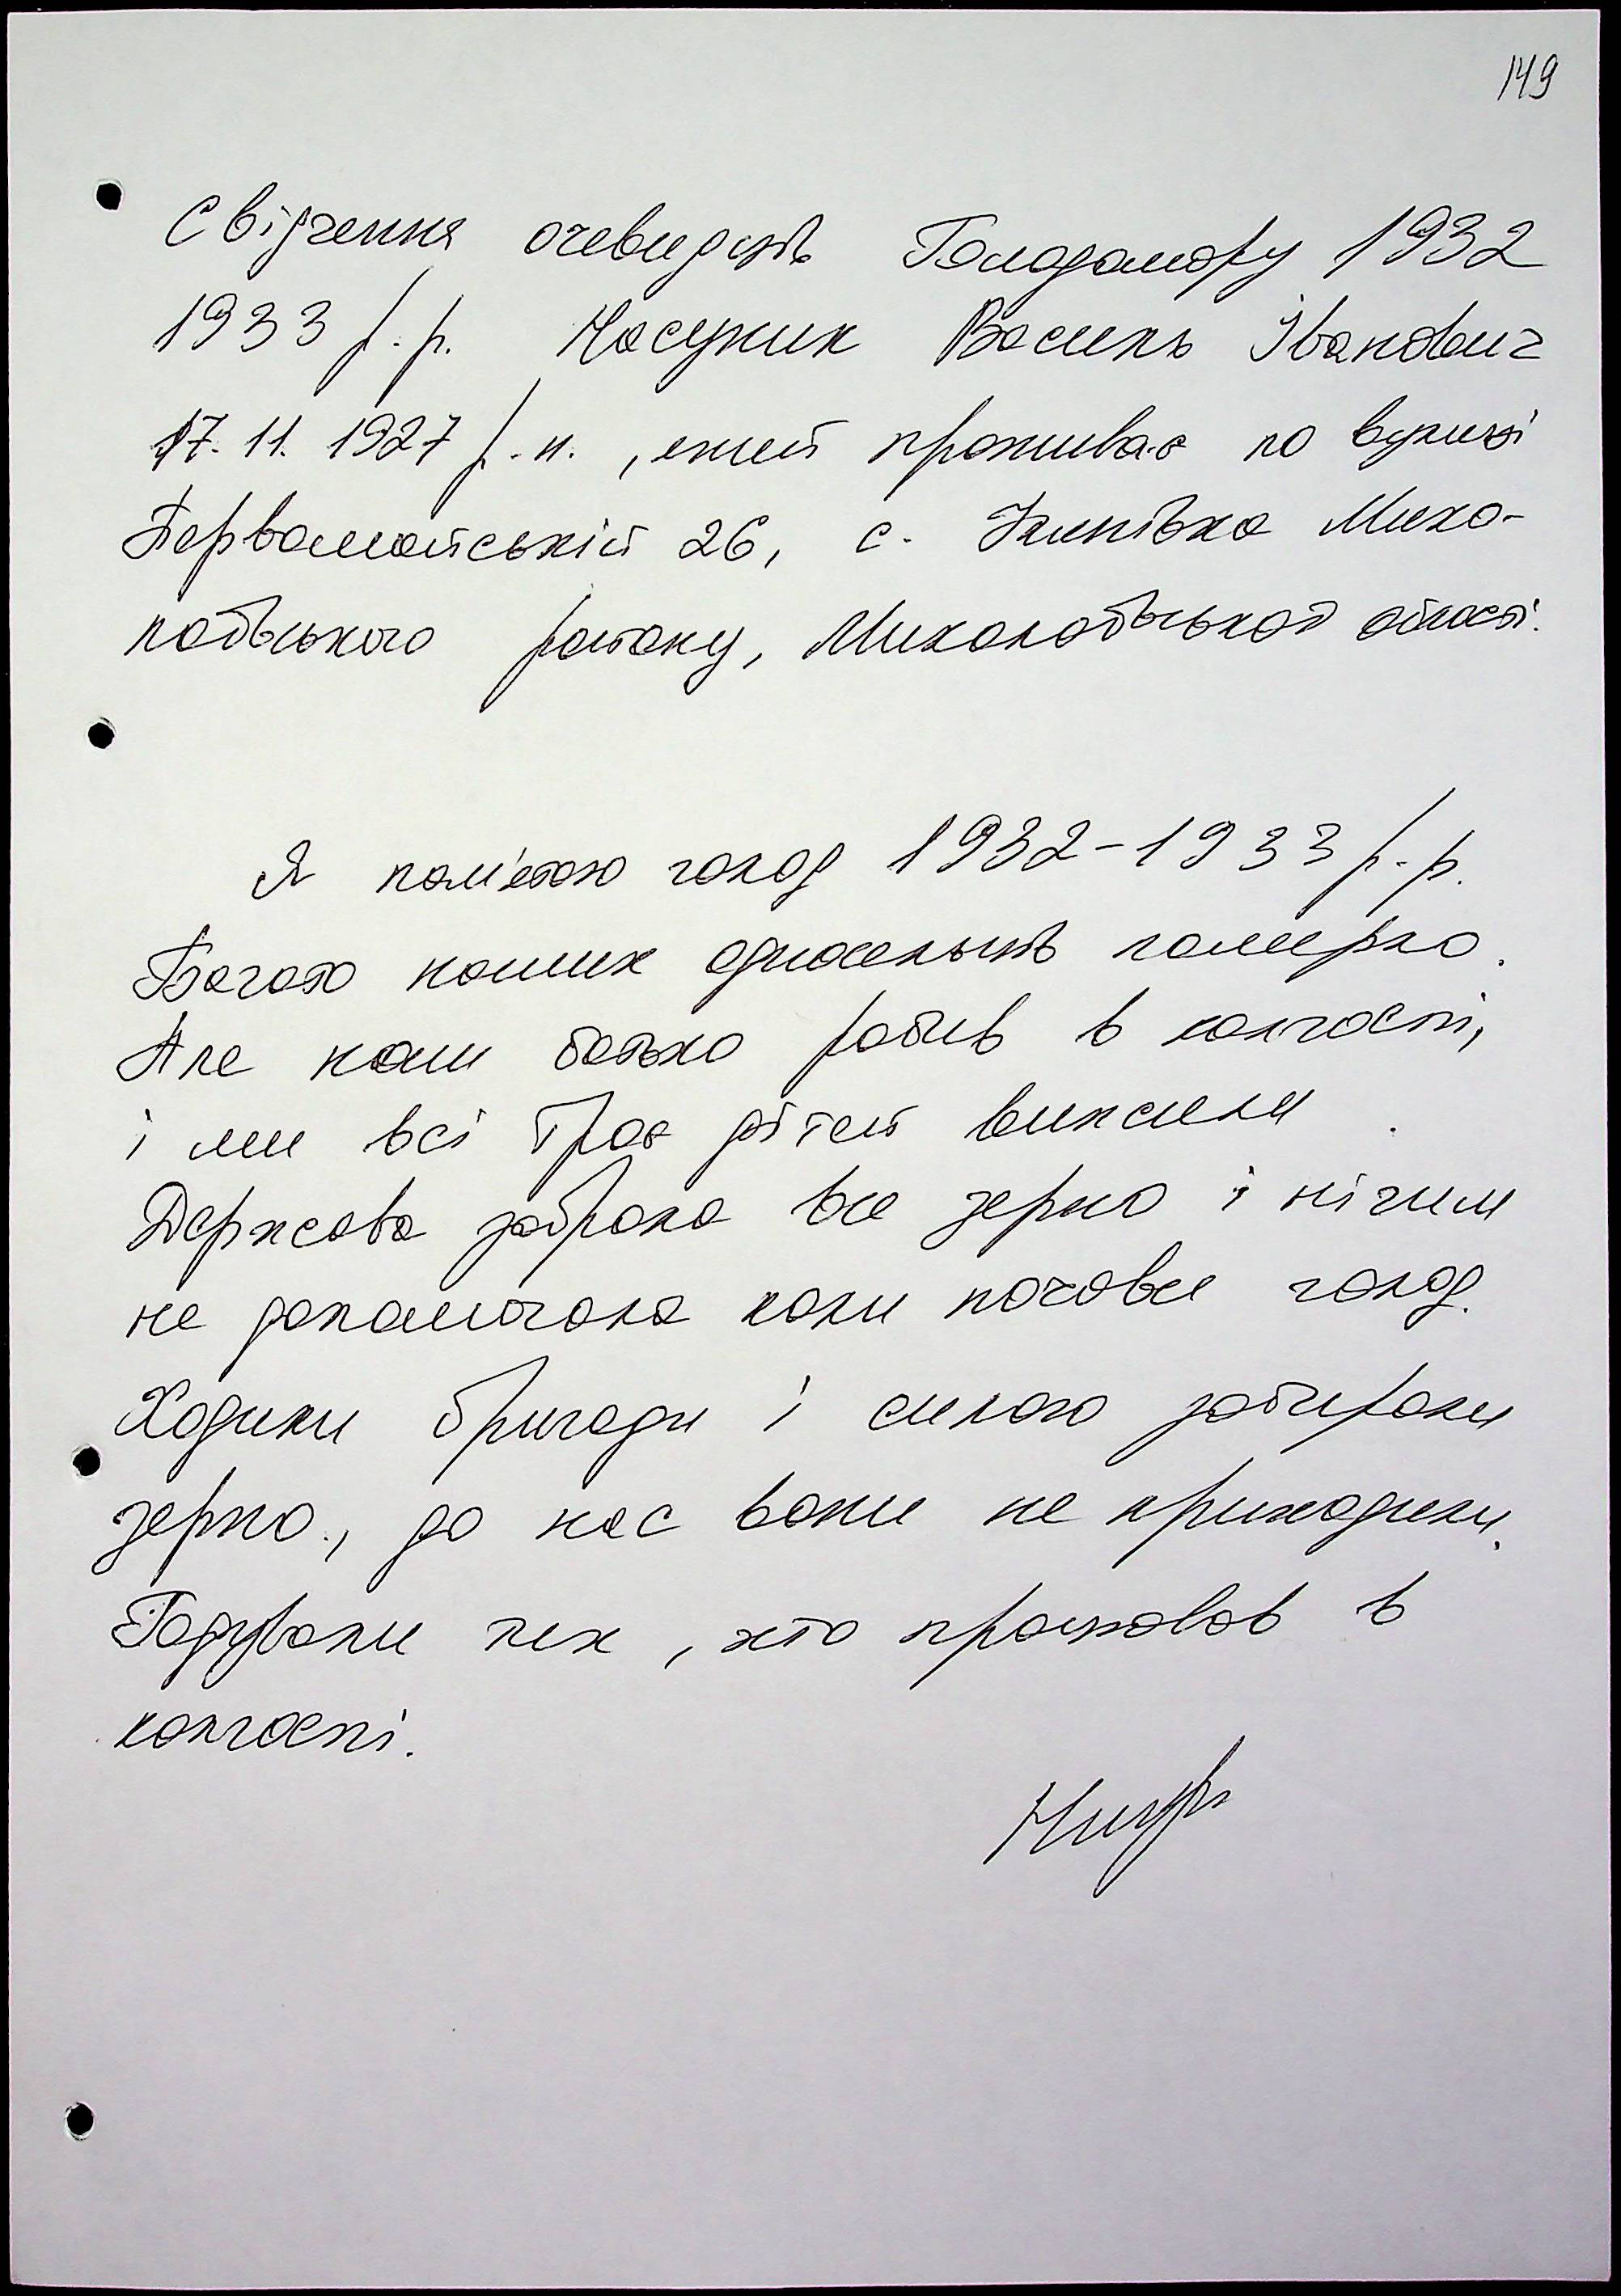 149
Свідчення очевидців Голодомору 1932
1933 р.р. Василь Іванович
17.11.1927 р.н., який проживає по вулиці
Первомайській 26, с. Мико-
лаївського району, Миколаївської області.
Я пам'ятаю голод 1932-1933 р.р.
Багато наших односельців померло.
Але наш батько робив в колгоспі,
і ми всі троє дітей вижили.
Держава забрала все зерно і нічим
не допомогала коли почався голод.
Ходили бригади і силою забирали
зерно., до нас вони не приходили.
Годували тих, хто працював в
колгоспі.